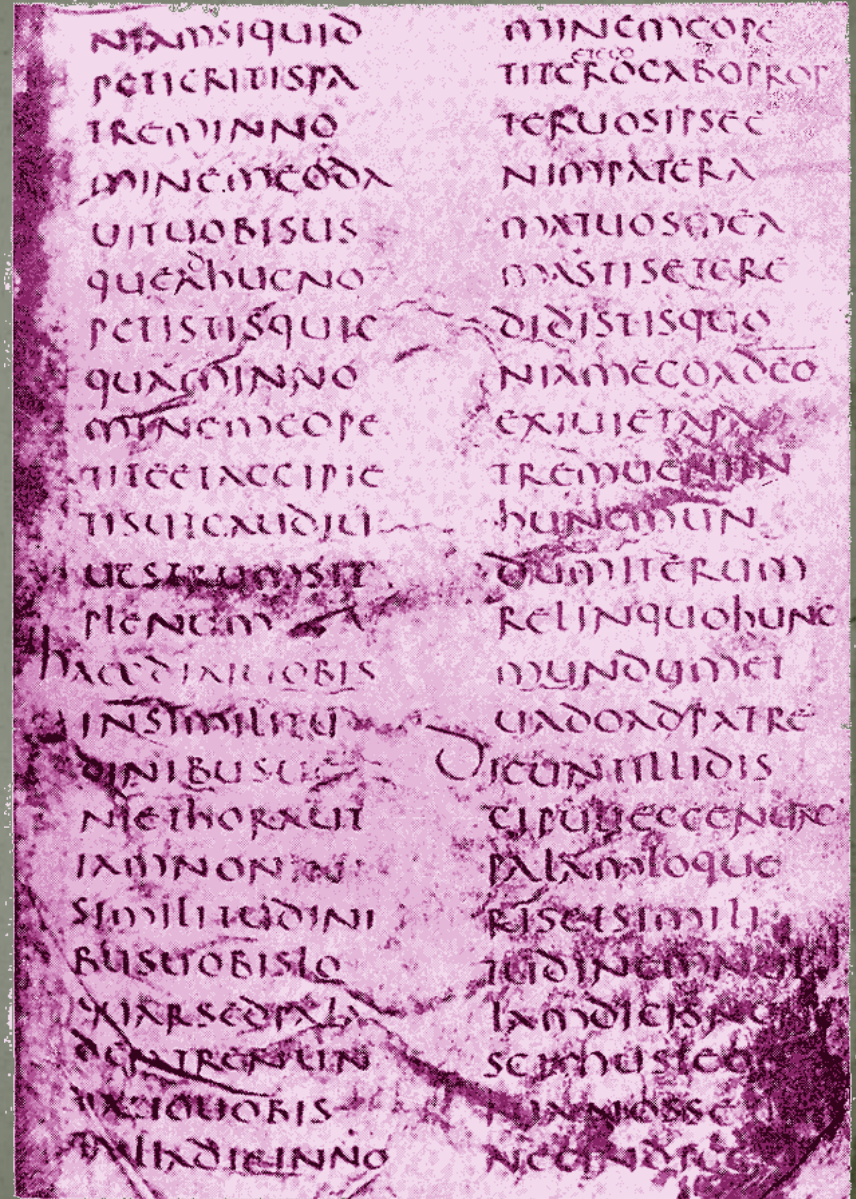 NIAMSIQUID
PETIERITISPA
TREMINNO
MINEMEODA
UITUOBISUS
QUEADHUCNO
PETISTISQUIC
QUAMINNO
MINEMEOPE
TITEETACCIPIE
TISUTGAUDIU
UESTRUMSIT
PLENUM
HAECDIXIUOBIS
INSIMILITU
DINIBUSUE
NIETHORAUT
IAMNONIN
SIMILITUDINI
BUSUOBISLO
QUARSEDPALA
UOBIS
ILLADIEINNO
MINEMEOPE
ETEGO
TITEROGABOPROP
TERUOSIPSEE
NIMPATERA
MATUOSMEA
MASTISETCRE
DIDISTISQUO
NIAMEGOADEO
EXIUIETAPA
TREMUENIIN
HUNCMUN
DUMITERUM
RELINQUOHUNC
MUNDUMET
UADOADPATRE
DICUNTILLIDIS
CIPULIECCENUNC
PALAMLOQUE
RISETSIMILI
TUDINEMNUL
LAMDICIS
NOSSE
NECINDIGE